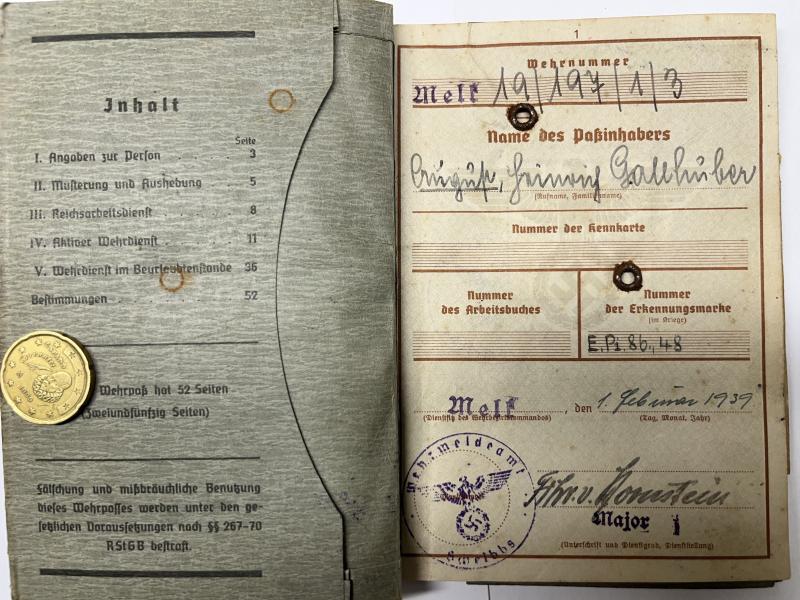 Inhalt
Seite
I. Angaben zur Person 3
II. Musterung und Aushebung 5
III. Reichsarbeitsdienst 8
IV. Aktiver Wehrdienst 11
V. Wehrdienst im Beurlaubtenstande 36
Bestimmungen 52
Wehrpaß hat 52 Seiten
(Zweiundfünfzig Seiten)
Fälschung und mißbräuchliche Benutzung
dieses Wehrpasses werden unter den ge-
setzlichen Voraussetzungen nach §§ 267-70
RStGB bestraft.
1
Wehrnummer
Melk 19/197/1/3
Name des Paßinhabers
August, Heinrich Gallhuber
(Rufname, Familienname)
Nummer der Kennkarte
Nummer
des Arbeitsbuches
Nummer
der Erkennungsmarke
(im Kriege)
E.Pi.86, 48
Melk, den 1. Februar 1939
(Dienstsitz des Wehrbezirkkommandos) (Tag, Monat, Jahr)
Wehrmeldeamt
Scheibbs
Frhr. v. Hornstein
Major
(Unterschrift und Dienstgrad, Dienststellung)